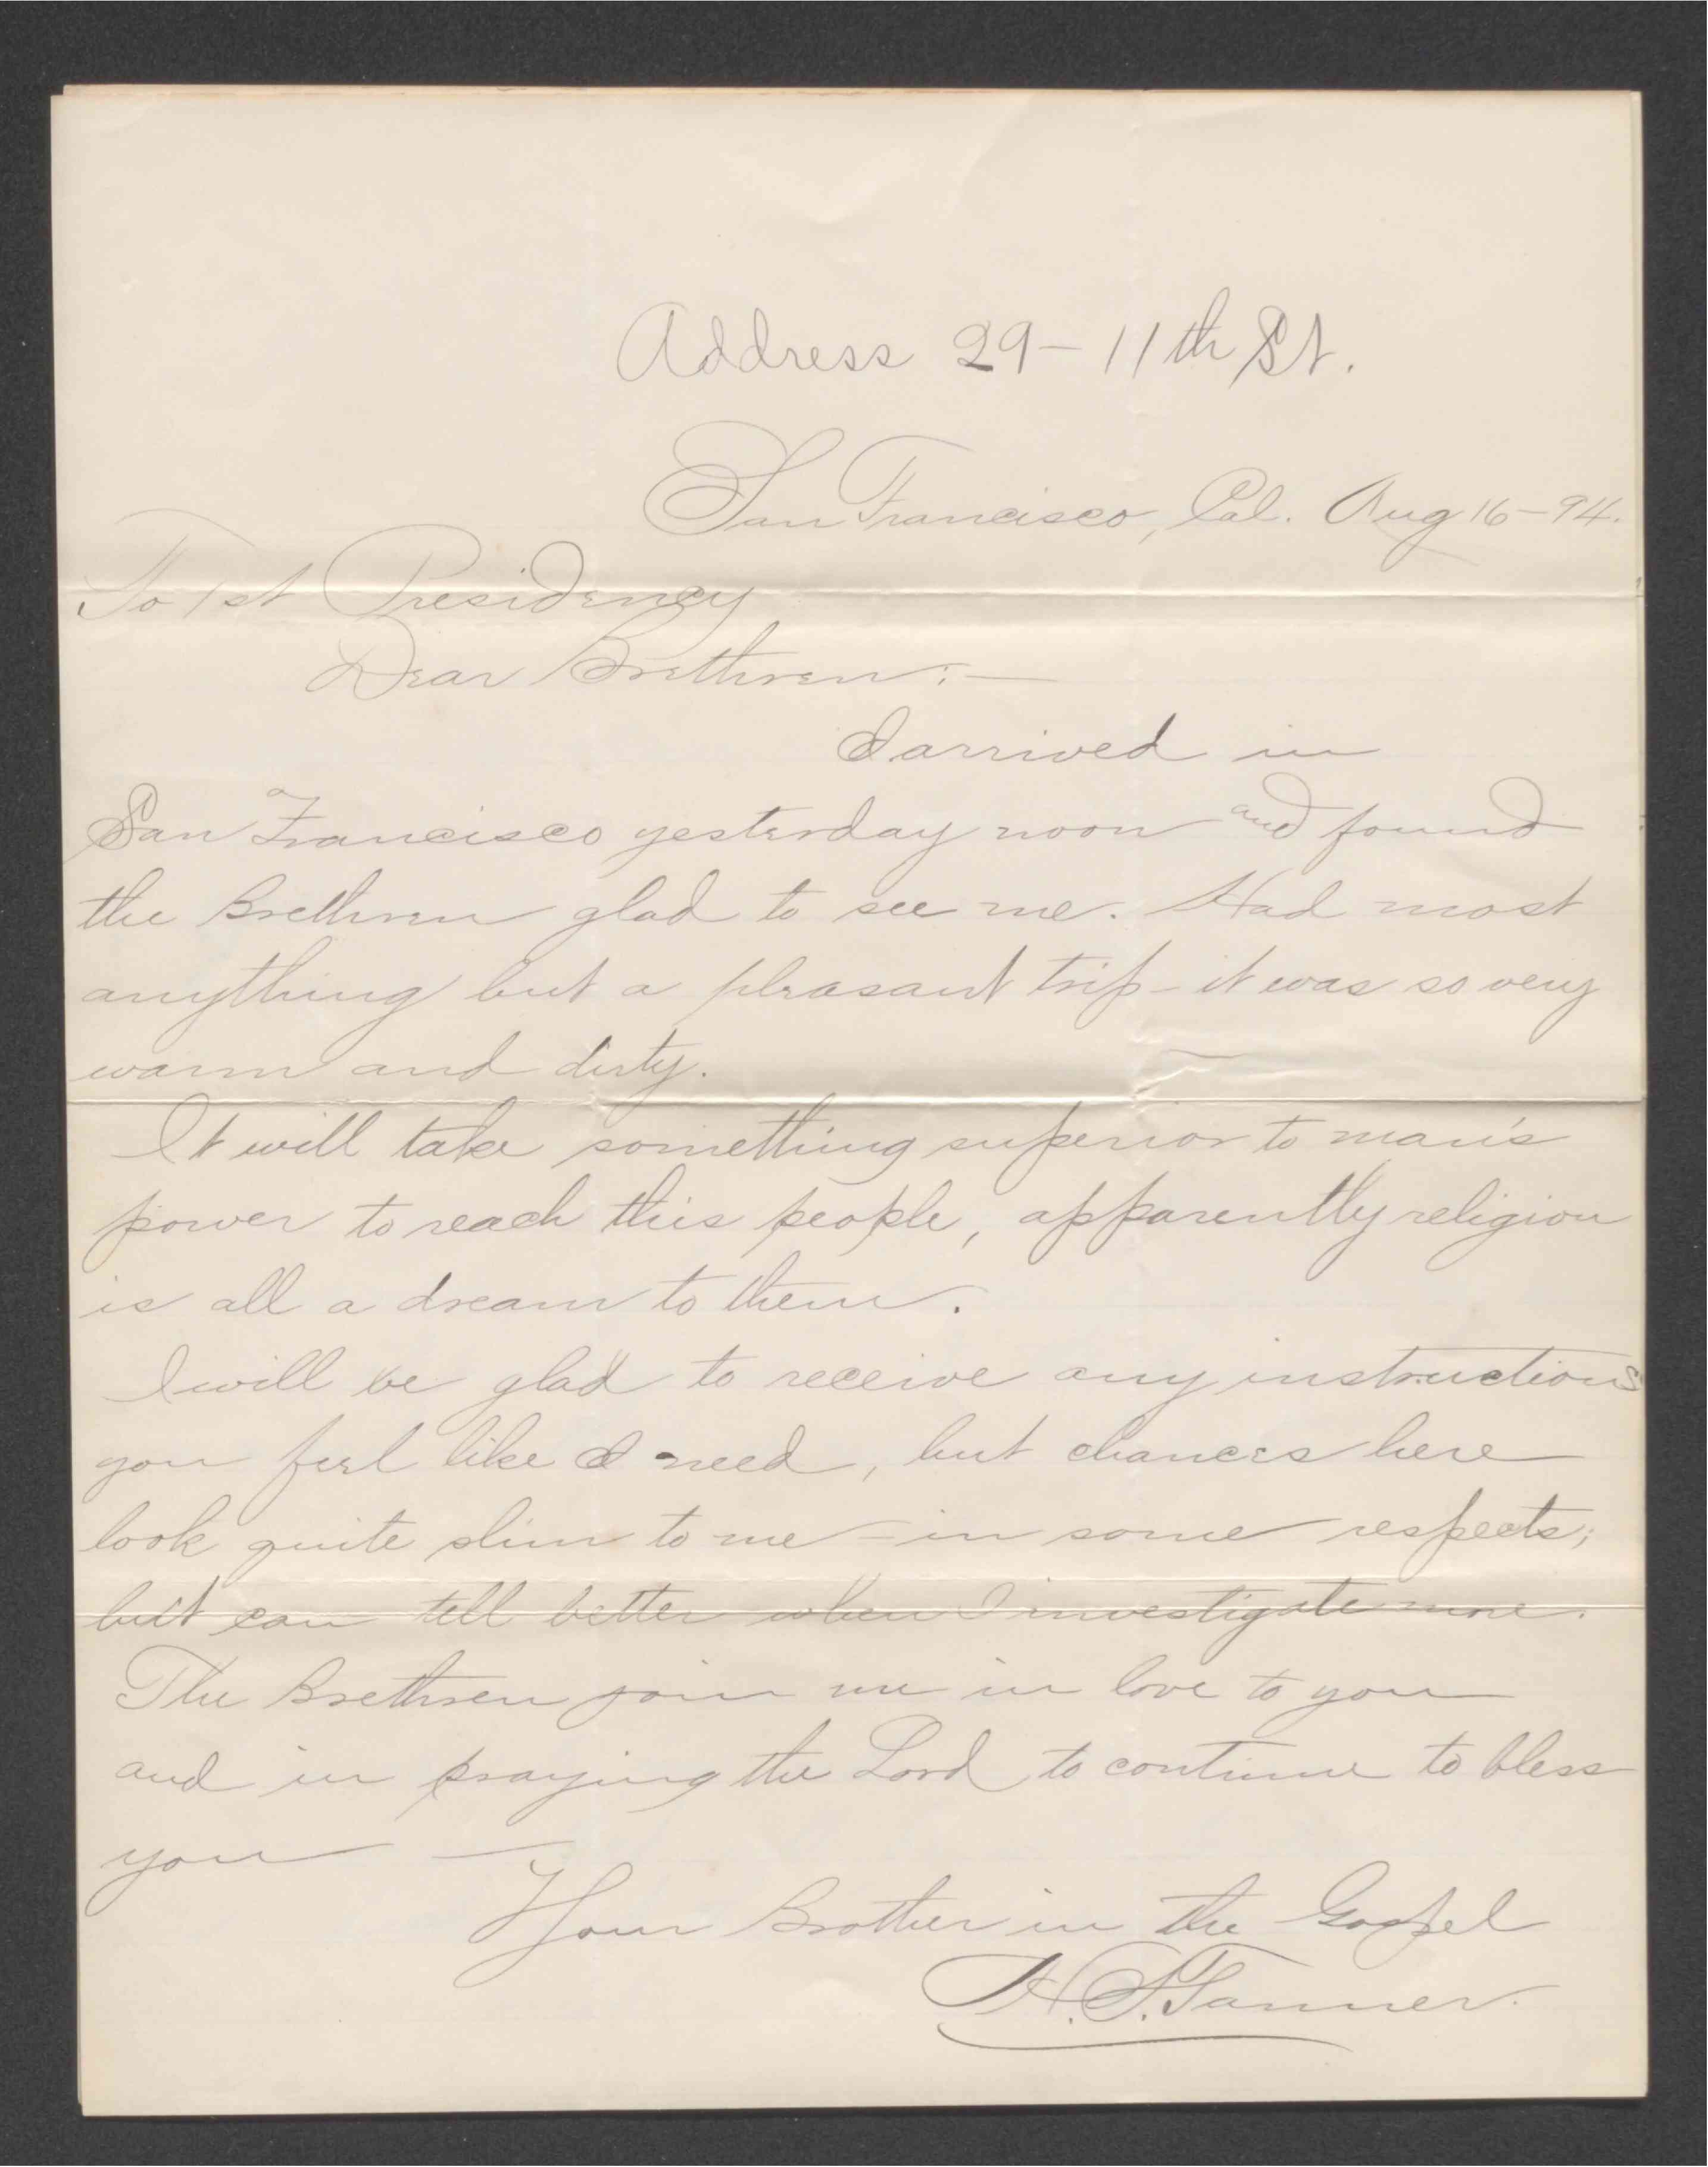 Address 29 – 11th St.
San Francisco, Cal. Aug 16 – 94.
To 1st Presidency
Dear Brethren: –
I arrived in
San Francisco yesterday noon and found
the Brethren glad to see me. Had most
anything but a pleasant trip – it was so very
warm and dirty.
It will take something superior to man's
power to reach this people, apparently religion
is all a dream to them.
I will be glad to receive any instructions
you feel like I need, but chances here
look quite slim to me – in some respects;
but can tell better when I investigate more.
The Brethren join me in love to you
and in praying the Lord to continue to bless
you –
Your Brother in the Gospel
H. S. Tanner.